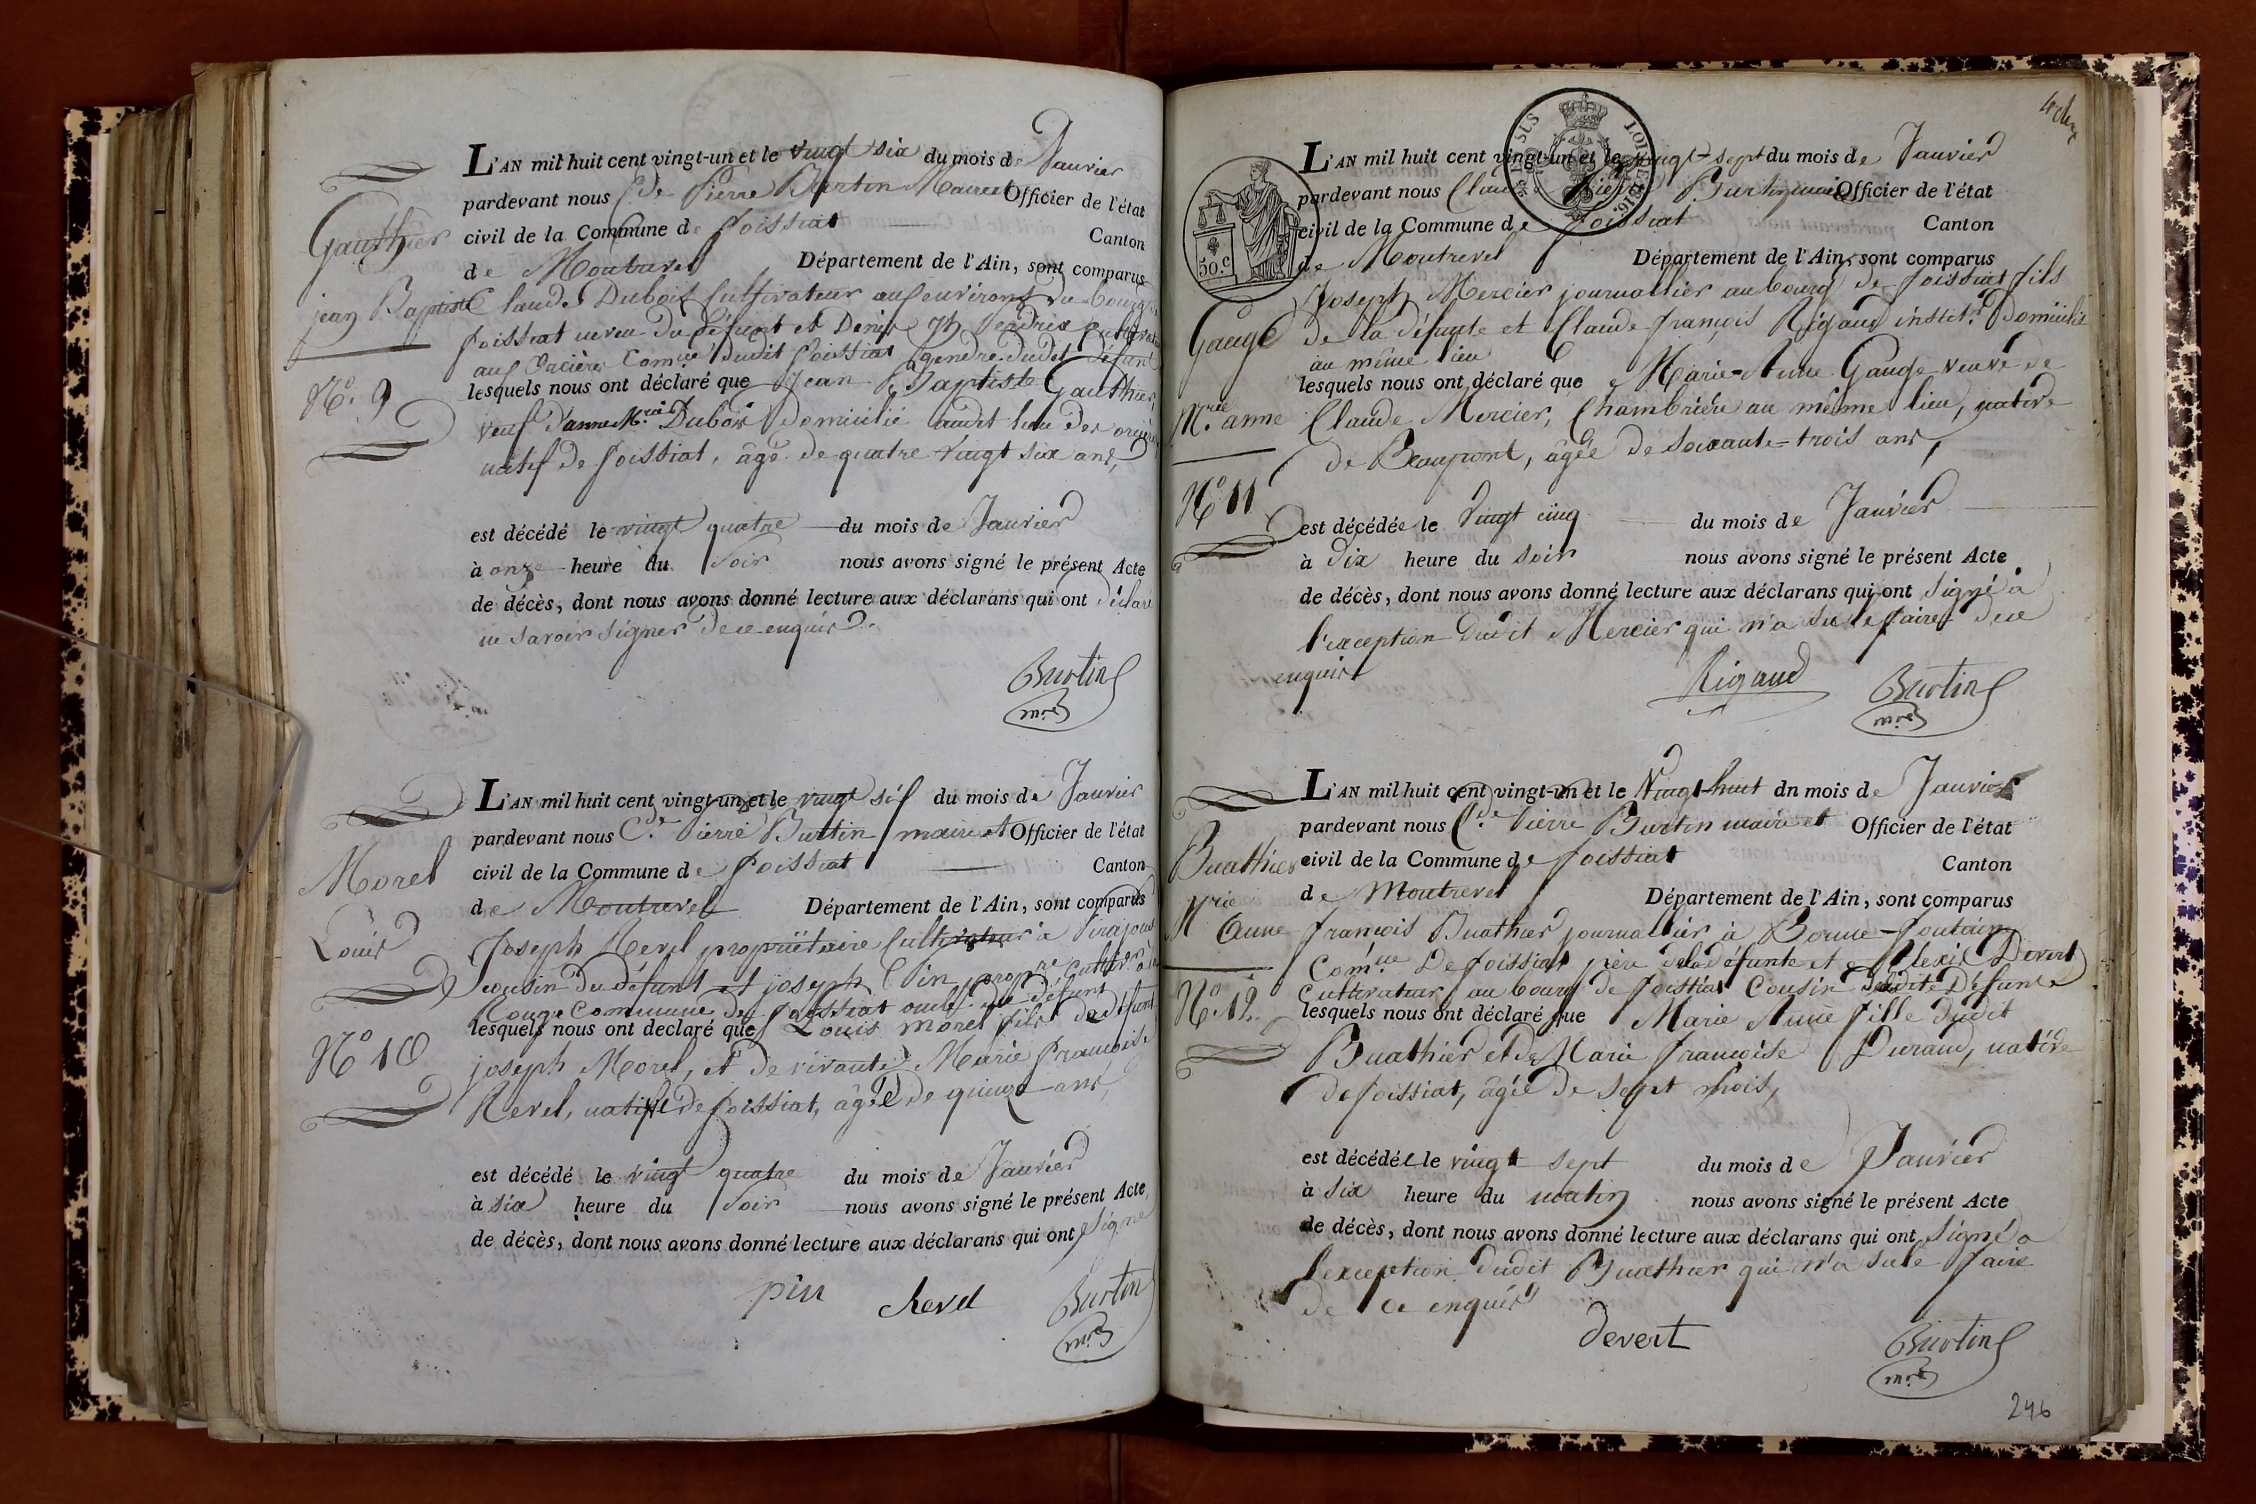 L'AN mil huit cent vingt-un et le vingt six du mois de Janvier
pardevant nous Cde Pierre Burtin Maire et Officier de l'état
civil de la Commune de foissiat Canton
de Montrevel Département de l'Ain, sont comparus
Claude Dubois Cultivateur aux environs du bourg
foissiat neveu du défunt et Denis Jh Vendrix Cultivateur
aux Orcières Comne dudit foissiat gendre dudit défunt
lesquels nous ont déclaré que Jean Baptiste Gauthier,
veuf d'anne Mrie Dubois domicilié audit lieu des orcières
natif de foissiat, âgé de quatre vingt six ans,
est décédé le vingt quatre du mois de Janvier
à onze heure du soir nous avons signé le présent Acte
de décès, dont nous avons donné lecture aux déclarans qui ont déclaré
ne savoir signer de ce enquis.
Burtin
mre
Gauthier
jean Baptiste
No. 9
L'AN mil huit cent vingt-un et le vingt six du mois de Janvier
pardevant nous Cde Pierre Burtin maire et Officier de l'état
civil de la Commune de foissiat Canton
de Montrevel Département de l'Ain, sont comparus
Joseph Revel propriétaire Cultivateur à Pirajoux
cousin du défunt et joseph Pin propre cultivr à la
Rouge Commune de foissiat oncle du défunt
lesquels nous ont declaré que Louis Morel fils de défunt
joseph Morel, et de vivante Marie françoise
Revel, natif de foissiat, âgé de quinze ans,
est décédé le vingt quatre du mois de Janvier
à six heure du soir nous avons signé le présent Acte
de décès, dont nous avons donné lecture aux déclarans qui ont signé
pin Revel Burtin
mre
Morel
Louis
No 10
4
SUS
LOI DE 1816.
50.c
L'AN mil huit cent vingt-un et le vingt-sept du mois de Janvier
pardevant nous Claude Pierre Burtin maire Officier de l'état
civil de la Commune de foissiat Canton
de Montrevel Département de l'Ain, sont comparus
Joseph Mercier journallier au bourg de foissiat fils
de la défunte et Claude françois Rigaud instit. Domicilié
au même lieu
lesquels nous ont déclaré que Marie-Anne Gauge veuve de
Claude Mercier, Chambrière au même lieu, native
de Beaupont, âgée de soixante-trois ans,
est décédée le Vingt cinq du mois de Janvier
à dix heure du soir nous avons signé le présent Acte
de décès, dont nous avons donné lecture aux déclarans qui ont signé à
l'exception dudit Mercier qui n'a su le faire de ce
enquis
Rigaud Burtin
mre
Gauge
Mrie anne
No 11
L'AN mil huit cent vingt-un et le Vingt-huit dn mois de Janvier
pardevant nous Cde Pierre Burtin maire et Officier de l'état
civil de la Commune de foissiat Canton
de Montrevel Département de l'Ain, sont comparus
françois Buathier journallier à Bonne-fontaine
Comne de foissiat père de la défunte et Alexis Devert
Cultivateur au bourg de foissiat Cousin de ladite défunte
lesquels nous ont déclaré que Marie Anne fille dudit
Buathier et de Marie françoise Durand, native
de foissiat, âgée de sept mois,
est décédée le vingt sept du mois de Janvier
à six heure du matin nous avons signé le présent Acte
de décès, dont nous avons donné lecture aux déclarans qui ont signé à
l'exception dudit Buathier qui n'a su le faire
de ce enquis
devert Burtin
mre
Buathier
Mrie
Anne
No. 12.
246